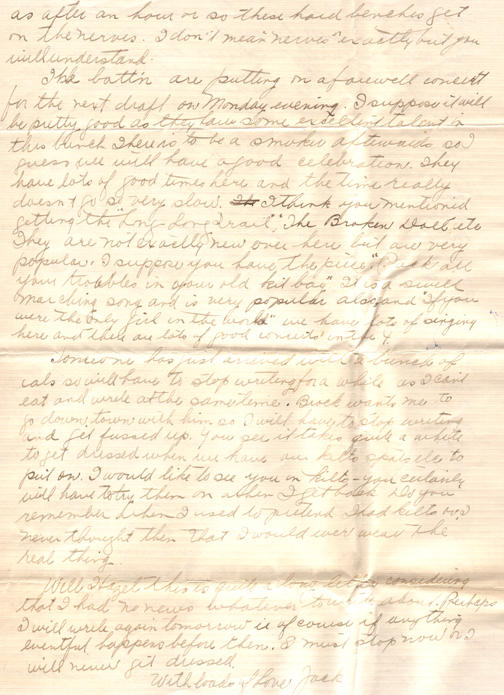 as after an hour or so these hard benches get
on the nerves. I don't mean "nerves" exactly but you
will understand.
The batt'n are putting on a farewell concert
for the next draft on Monday evening. I suppose it will
be pretty good as they have some excellent talent in
this bunch There is to be a smoker afterwards so I
guess we will have a good celebration. They
have lots of good times here and the time really
doesn't go so very slow. I think you mentioned
getting the "Long-Long Trail", "The Broken Doll" etc
They are not exactly new over here but are very
popular. I suppose you have the piece "Pack all
your troubles in your old kit bag" It is a swell
marching song and is very popular also and "If you
were the only girl in the world" we have lots of singing
here and there are lots of good concerts in the Y.
Someone has just arrived with a bunch of
eats so will have to stop writing for a while as I can't
eat and write at the same time. Brock wants me to
go down town with him so I will have to stop writing
and get fussed up. You see it takes quite a while
to get dressed when we have our kilts spats etc to
put on. I would like to see you in kilts - you certainly
will have to try them on when I get back. Do you
remember when I used to pretend I had kilts and
never thought then that I would ever wear the
real thing.
Well Hazel this is quite a long letter considering
that I had no news whatever to write about. Perhaps
I will write again tomorrow ie of course if anything
eventful happens before then. I must stop now or I
will never get dressed
With loads of Love Jack